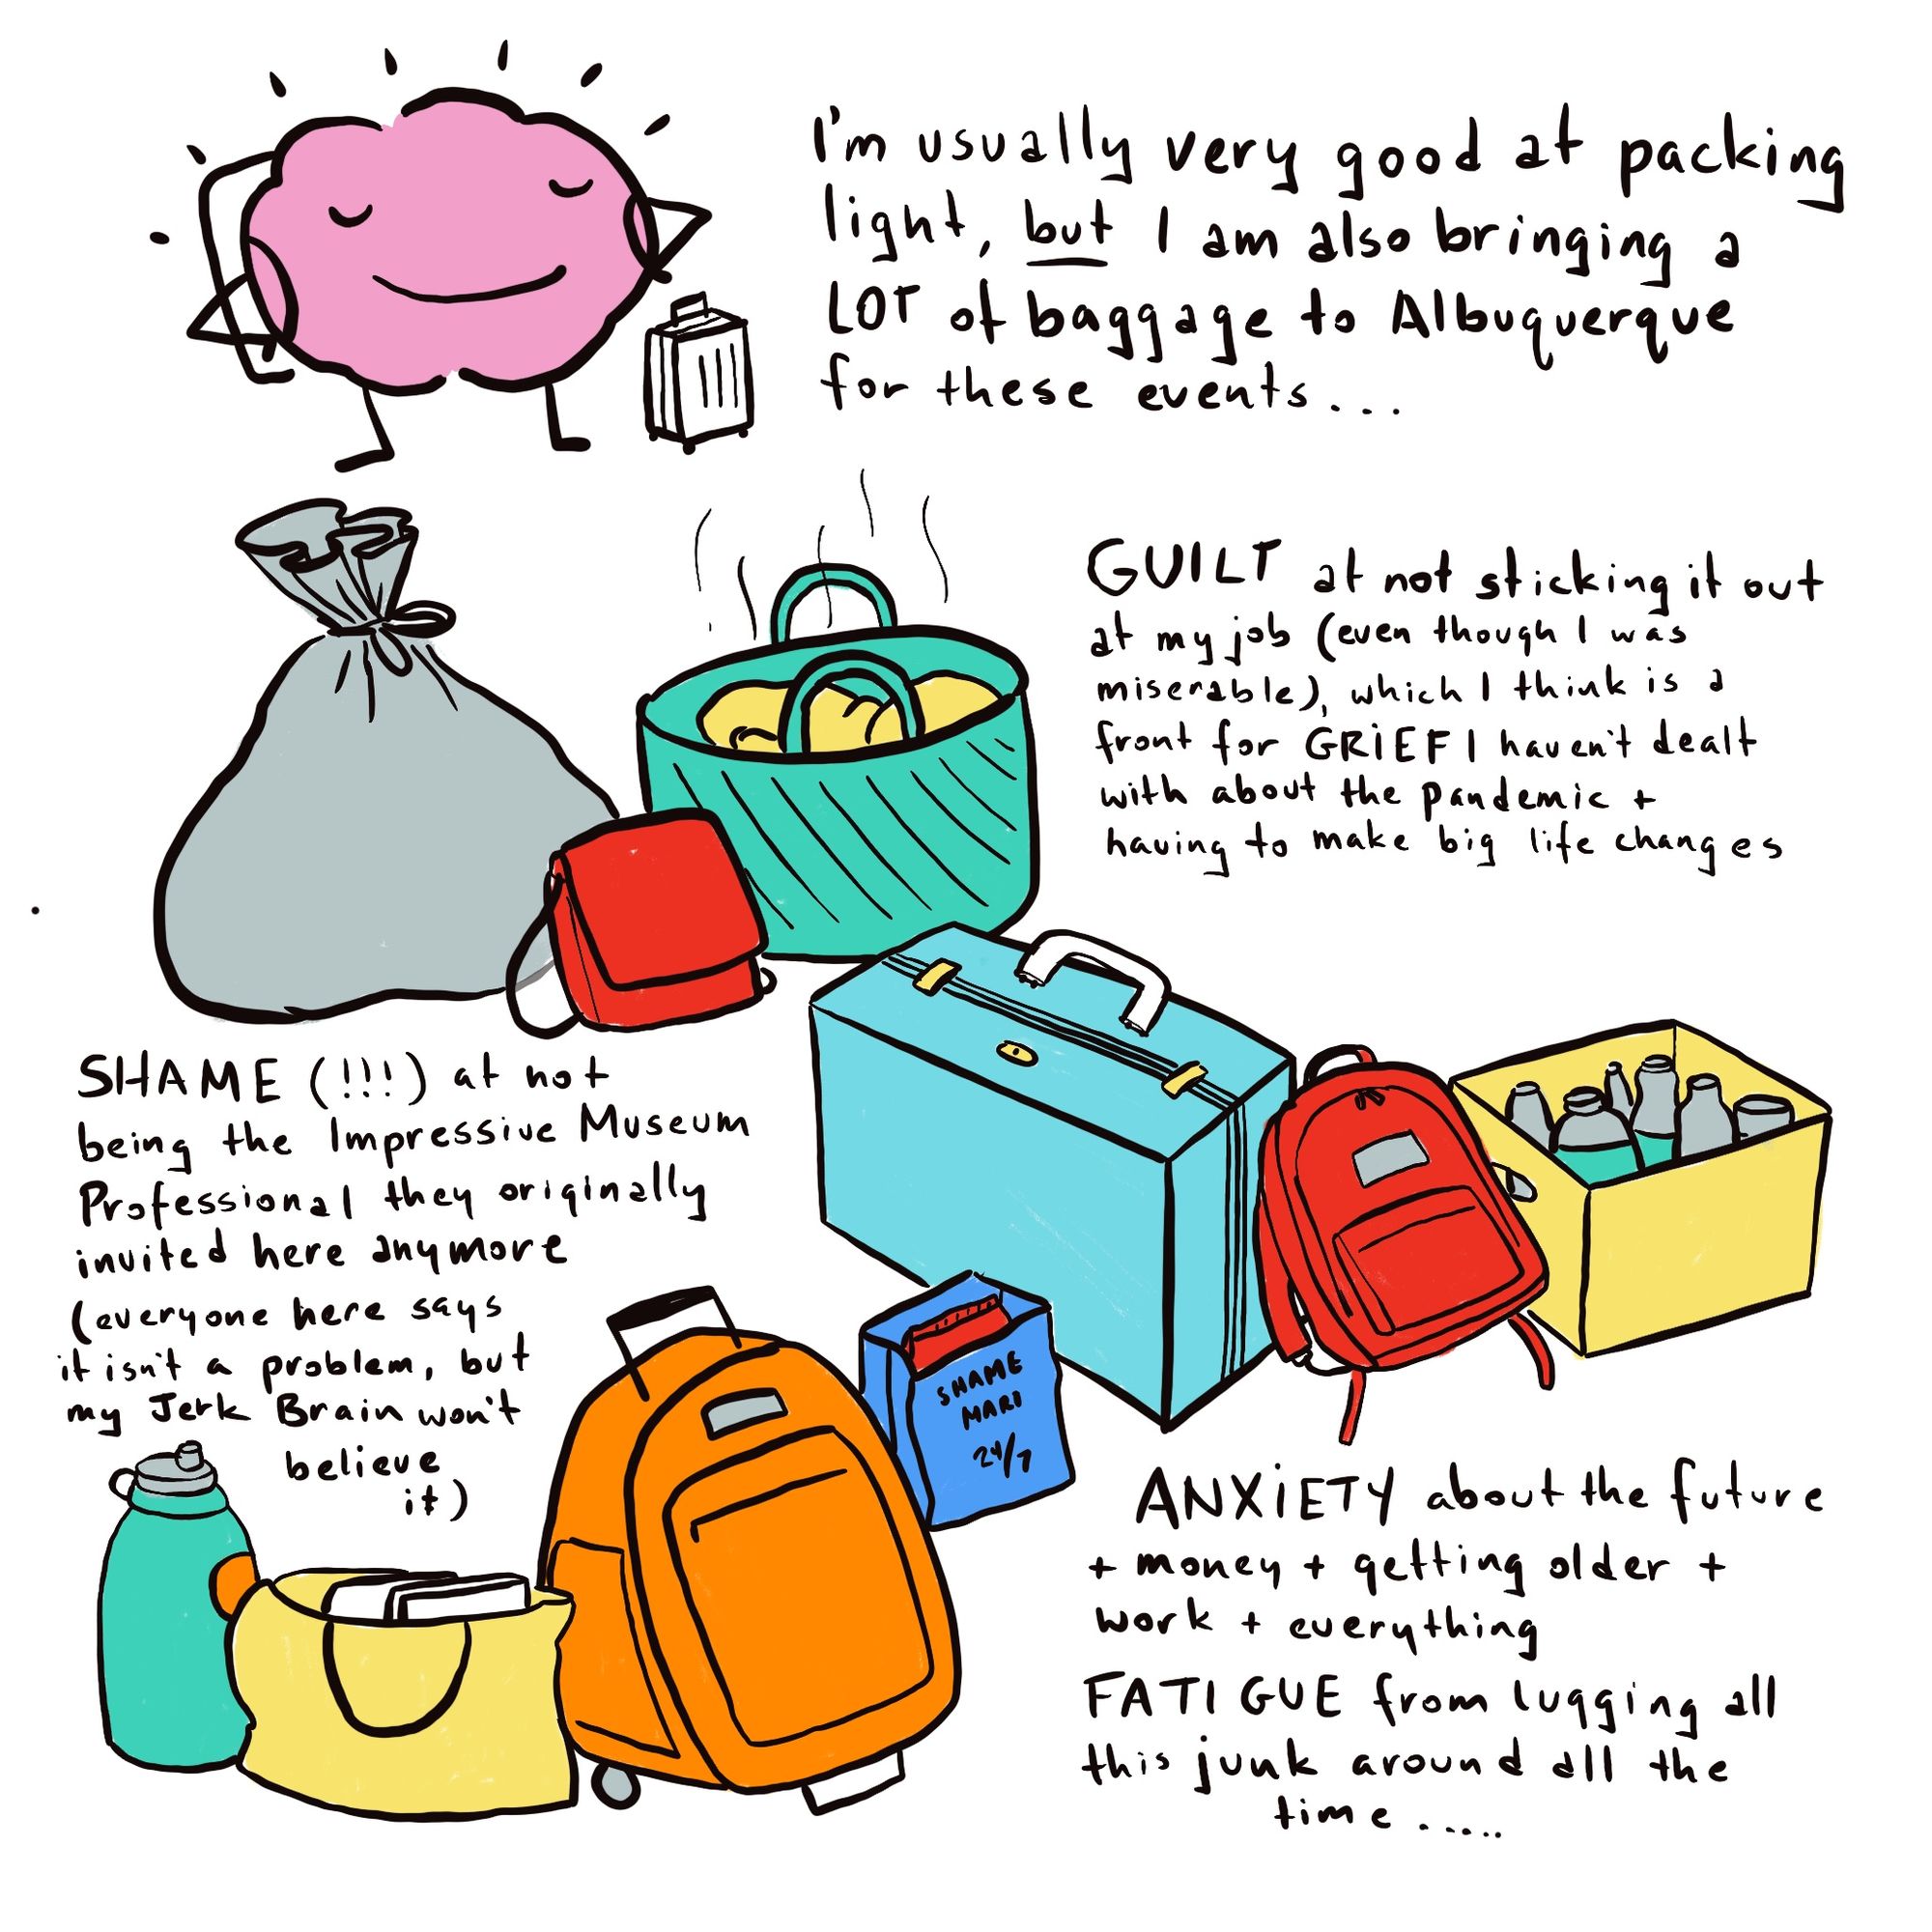 I'm usually very good at packing
light, but I am also bringing a
LOT of baggage to Albuquerque
for these events...
GUILT at not sticking it out
at my job (even though I was
miserable), which I think is a
front for GRIEF I haven't dealt
with about the pandemic +
having to make big life changes
SHAME (!!!) at not
being the Impressive Museum
Professional they originally
invited here anymore
(everyone here says
it isn't a problem, but
my Jerk Brain won't
believe
it)
SHAME
MART
24/7
ANXIETY about the future
+ money + getting older +
work + everything
FATIGUE from lugging all
this junk around all the
time.....